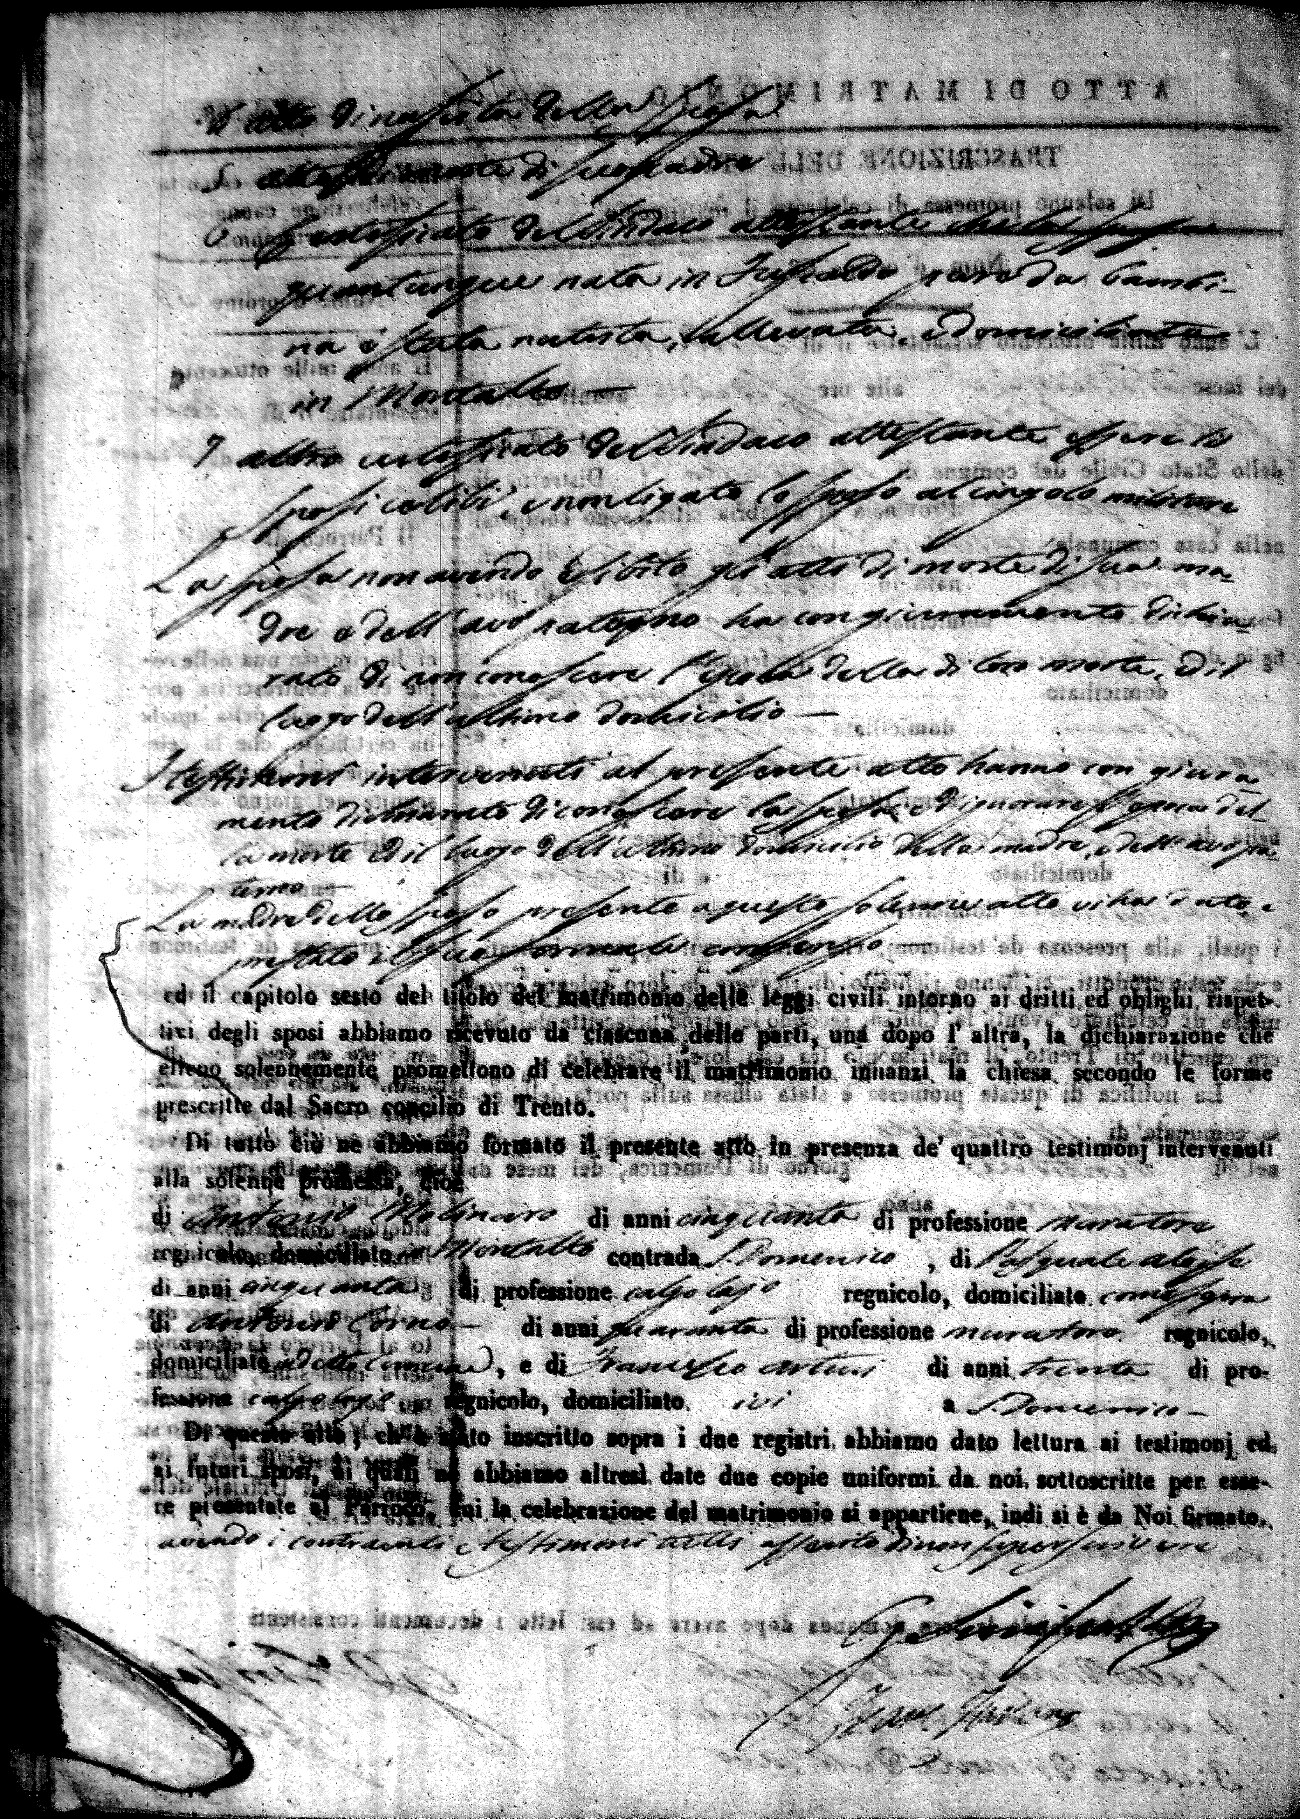 4 atto di nascita della sposa
5 atto di morte di suo padre
6 certificato del Sindaco attestante che la sposa
quantunque nata in Fuscaldo però da bambi-
na è stata nutrita, allevata, e domiciliata
in Montalto —
7 altro certificato del Sindaco attestante essere li
sposi celibi, e non ligato lo sposo al cingolo militare
La sposa non avendo esibito gli atti di morte di sua ma-
dre e dell'avo paterno ha con giuramento dichia-
rato di non conoscere l'epoca della di loro morte, ed il
luogo dell'ultimo domicilio —
I testimoni intervenuti al presente atto hanno con giura-
mento dichiarato di conoscere la sposa, e d'ignorare l'epoca del-
la morte ed il luogo dell'ultimo domicilio della madre, e dell'avo pa-
terno —
La madre dello sposo presente a questo solenne atto vi ha
prestato il suo formale consenso
ed il capitolo sesto del titolo del matrimonio delle leggi civili intorno ai dritti ed oblighi rispet-
tivi degli sposi abbiamo ricevuto da ciascuna delle parti, una dopo l'altra, la dichiarazione che
elleno solennemente promettono di celebrare il matrimonio innanzi la chiesa secondo le forme
prescritte dal Sacro concilio di Trento.
Di tutto ciò ne abbiamo formato il presente atto in presenza de' quattro testimonj intervenuti
alla solenne promessa, cioè
di Antonio Molinaro di anni cinquanta di professione muratore
regnicolo, domiciliato in Montalto contrada S. Domenico, di Pasquale
di anni cinquanta di professione calzolajo regnicolo, domiciliato come sopra
di Antonio di anni quaranta di professione muratore regnicolo,
domiciliato in detto Comune, e di Francesco di anni trenta di pro-
fessione calzolajo regnicolo, domiciliato ivi a S. Domenico —
Di questo atto, ch'è stato inscritto sopra i due registri abbiamo dato lettura ai testimonj ed
ai futuri sposi, ai quali ne abbiamo altresì date due copie uniformi da noi sottoscritte per esse-
re presentate al Parroco, cui la celebrazione del matrimonio si appartiene, indi si è da Noi firmato,
avendo i contraenti e testimoni detto di non saper scrivere